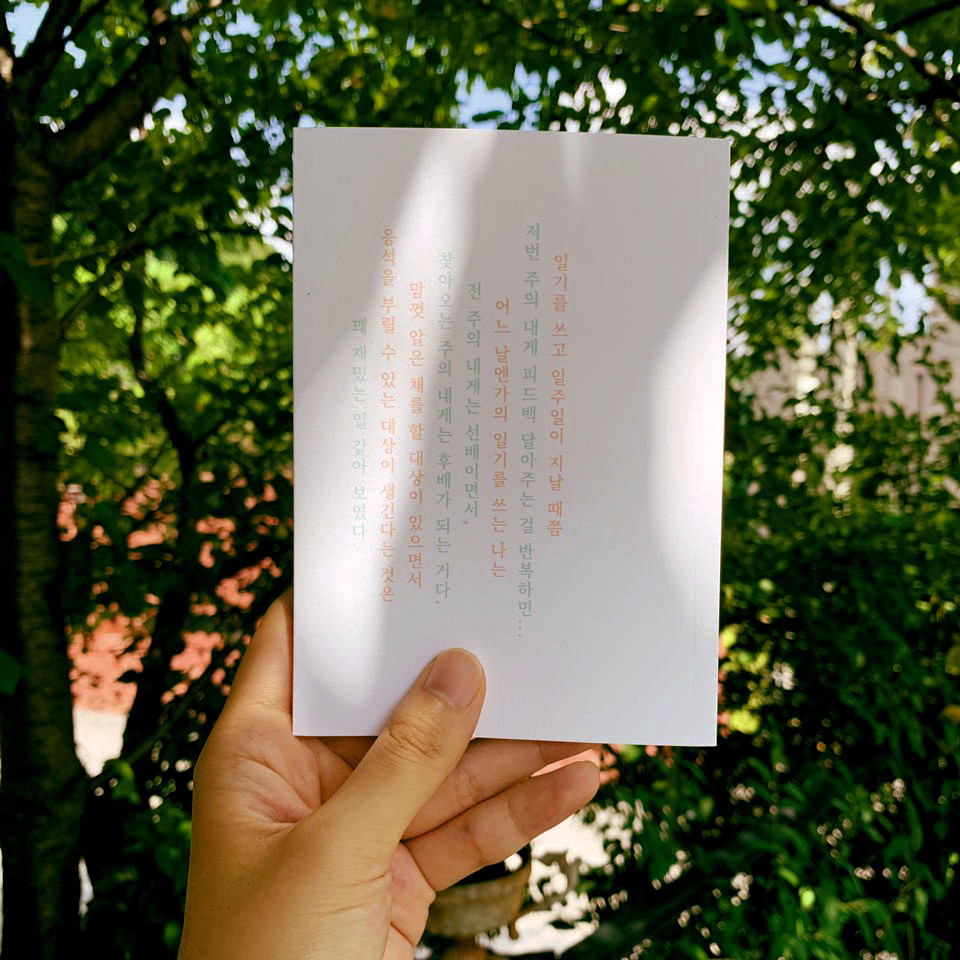 일기를 쓰고 일주일이 지날 때쯤
저번 주의 내게 피드백 달아주는 걸 반복하면...
어느 날엔가의 일기를 쓰는 나는
전 주의 내게는 선배이면서,
찾아오는 주의 내게는 후배가 되는 거다.
맘껏 알은 채를 할 대상이 있으면서
응석을 부릴 수 있는 대상이 생긴다는 것은
꽤 재밌는 일 같아 보였다.